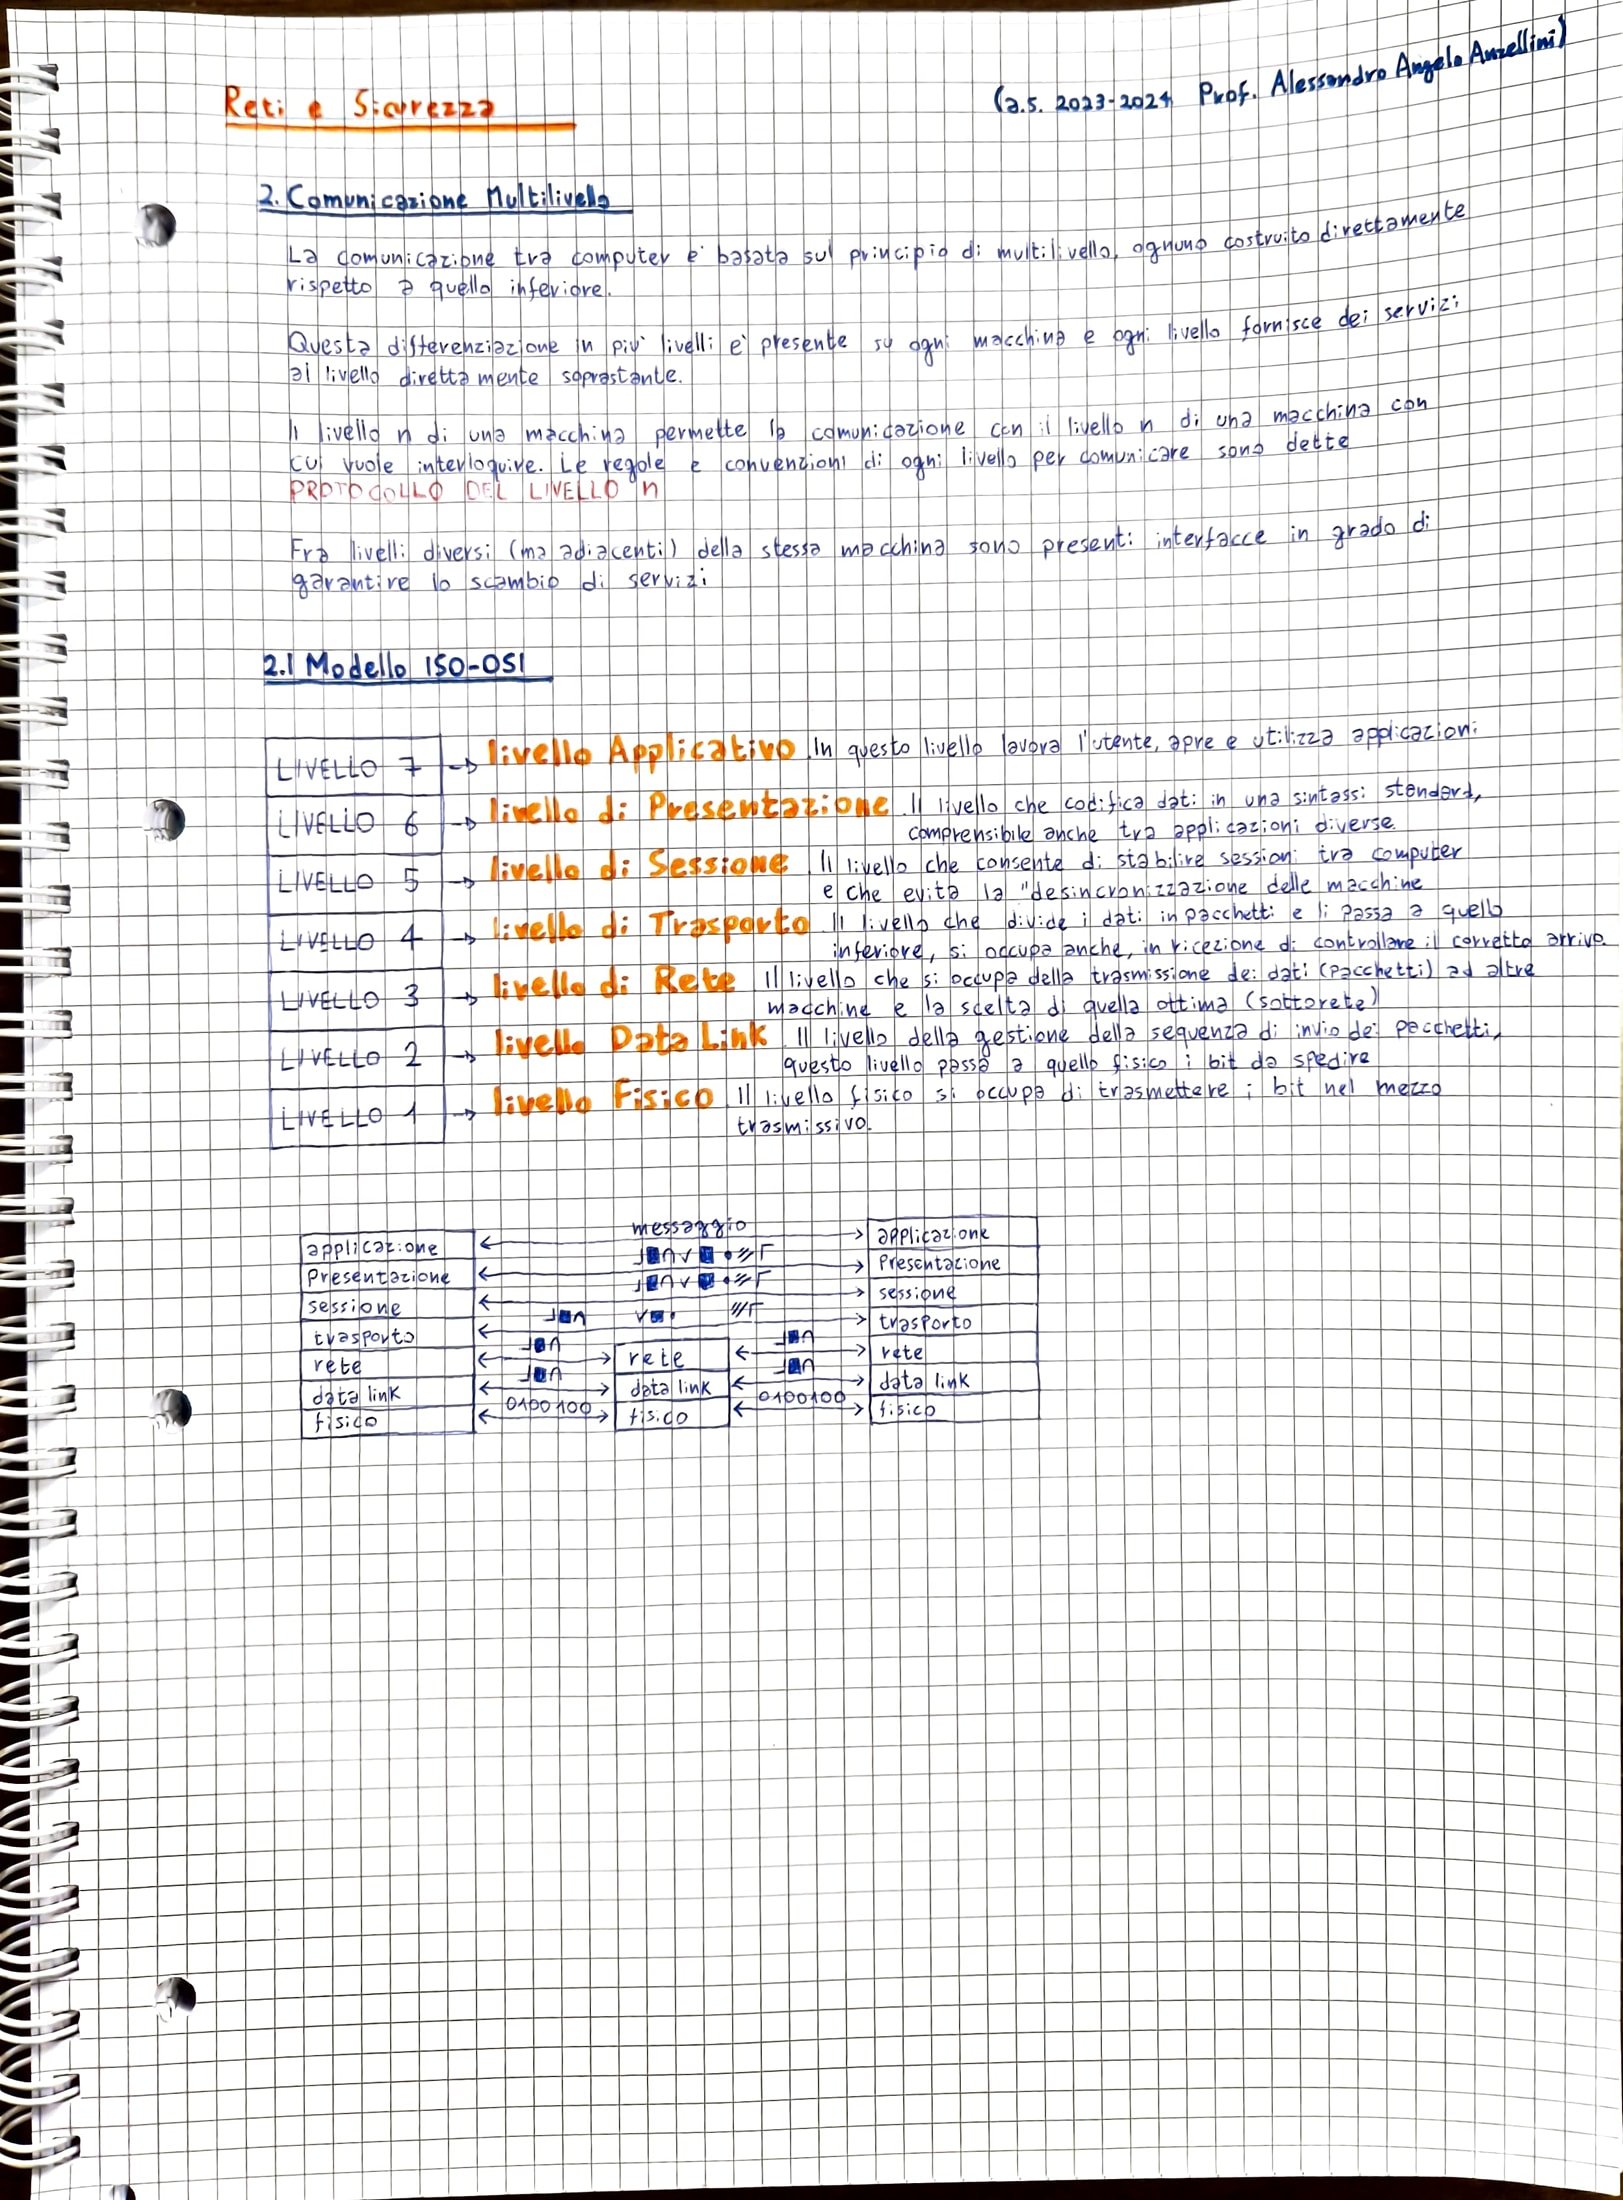 Reti e Sicurezza
(a.s. 2023-2024 Prof. Alessandro Angelo Anzellini)
2. Comunicazione Multilivello
La comunicazione tra computer e' basata sul principio di multilivello, ognuno costruito direttamente
rispetto a quello inferiore.
Questa differenziazione in piu' livelli e' presente su ogni macchina e ogni livello fornisce dei servizi
al livello direttamente soprastante.
Il livello n di una macchina permette la comunicazione con il livello n di una macchina con
cui vuole interloquire. Le regole e convenzioni di ogni livello per comunicare sono dette
PROTOCOLLO DEL LIVELLO n
Fra livelli diversi (ma adiacenti) della stessa macchina sono presenti interfacce in grado di
garantire lo scambio di servizi
2.1 Modello ISO-OSI
LIVELLO 7 → livello Applicativo In questo livello lavora l'utente, apre e utilizza applicazioni
LIVELLO 6 → livello di Presentazione Il livello che codifica dati in una sintassi standard,
comprensibile anche tra applicazioni diverse.
LIVELLO 5 → livello di Sessione Il livello che consente di stabilire sessioni tra computer
e che evita la "desincronizzazione delle macchine
LIVELLO 4 → livello di Trasporto Il livello che divide i dati in pacchetti e li passa a quello
inferiore, si occupa anche, in ricezione di controllare il corretto arrivo.
LIVELLO 3 → livello di Rete Il livello che si occupa della trasmissione dei dati (pacchetti) ad altre
macchine e la scelta di quella ottima (sottorete)
LIVELLO 2 → livello Data Link Il livello della gestione della sequenza di invio dei pacchetti,
questo livello passa a quello fisico i bit da spedire
LIVELLO 1 → livello Fisico Il livello fisico si occupa di trasmettere i bit nel mezzo
trasmissivo.
applicazione messaggio applicazione
Presentazione Presentazione
sessione sessione
trasporto trasporto
rete rete rete
data link data link data link
fisico 0100100 fisico 0100100 fisico